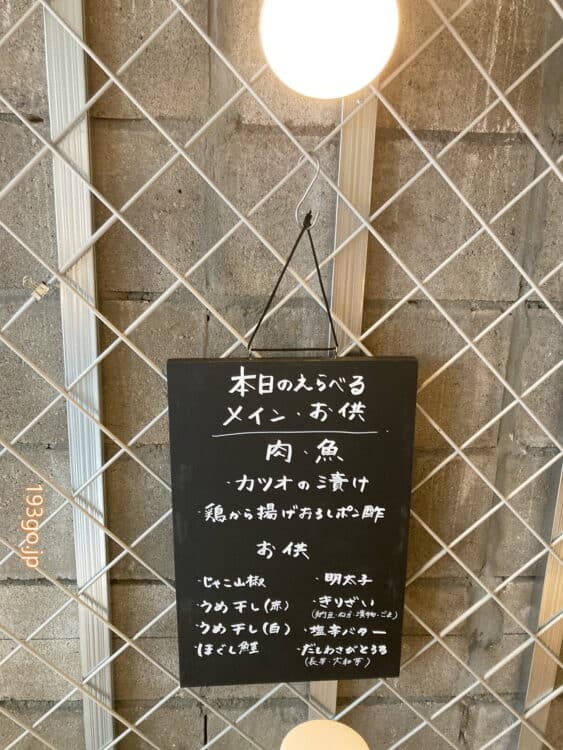 本日のえらべる
メイン・お供
肉・魚
・カツオの漬け
・鶏から揚げおろしポン酢
お供
・じゃこ山椒
・うめ干し(赤)
・うめ干し(白)
・ほぐし鮭
・明太子
・きりざい
(納豆・ぬか・漬物・ごま)
・塩辛バター
・だしわさびとろろ
(長芋・大和芋)
193go.jp
193go.jp